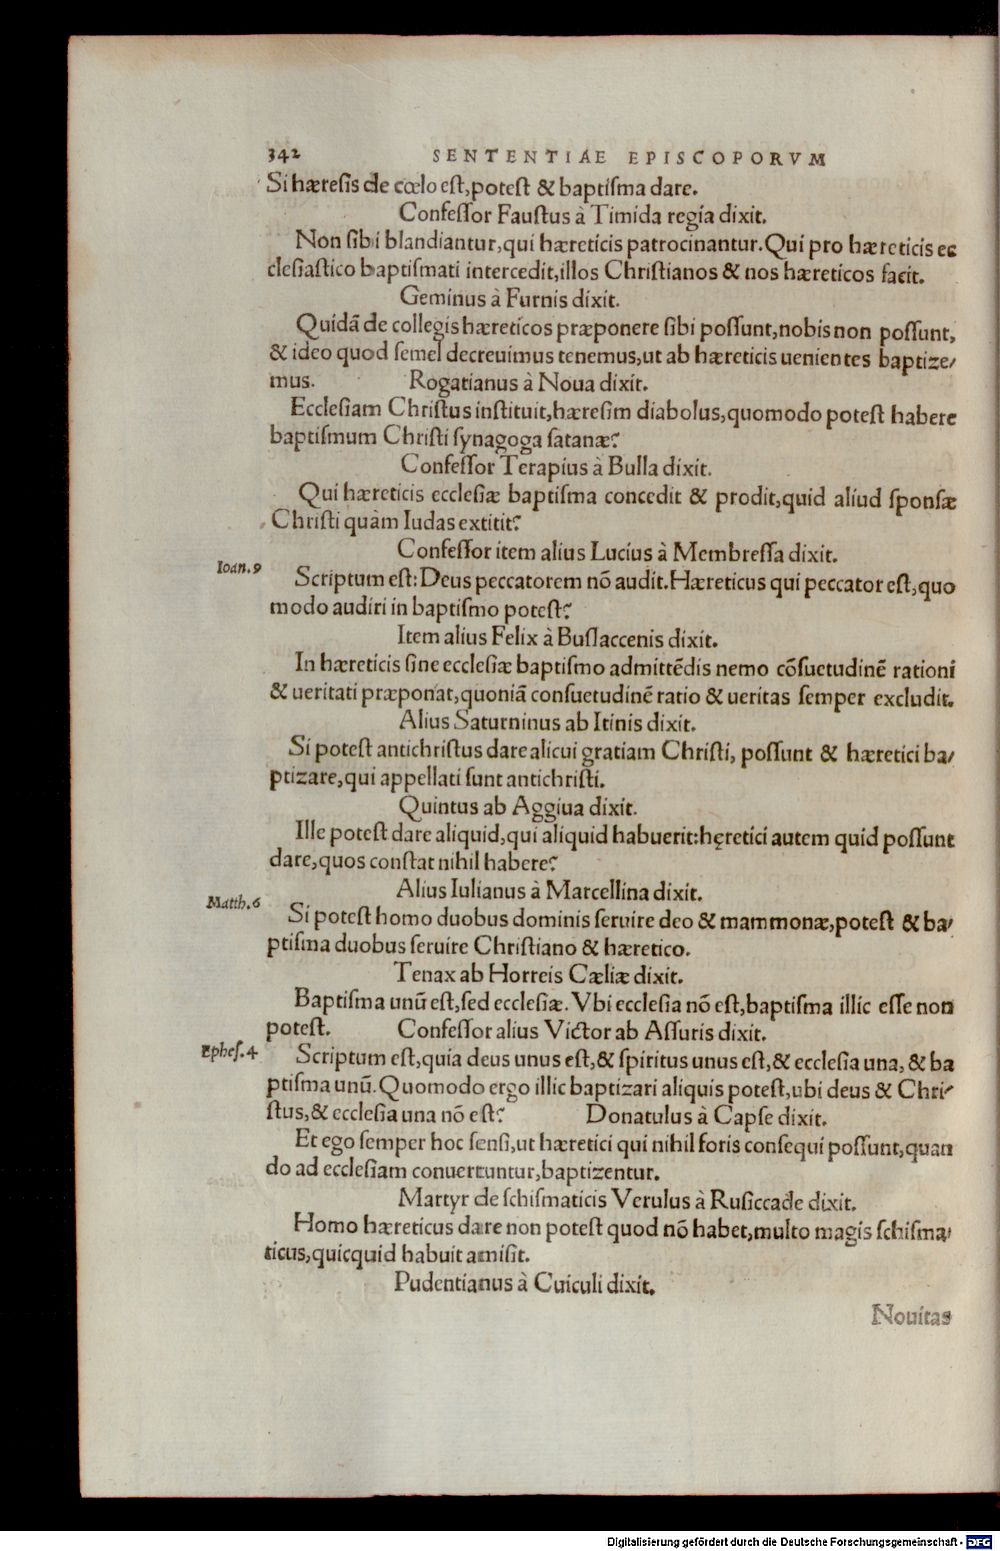 342 SENTENTIAE EPISCOPORVM
Si hæresis de cœlo est, potest & baptisma dare.
Confessor Faustus à Timida regia dixit.
Non sibi blandiantur, qui hæreticis patrocinantur. Qui pro hæreticis ec
clesiastico baptismati intercedit, illos Christianos & nos hæreticos facit.
Geminus à Furnis dixit.
Quidã de collegis hæreticos præponere sibi possunt, nobis non possunt,
& ideo quod semel decreuimus tenemus, ut ab hæreticis uenientes baptize/
mus. Rogatianus à Noua dixit.
Ecclesiam Christus instituit, hæresim diabolus, quomodo potest habere
baptismum Christi synagoga satanæ?
Confessor Terapius à Bulla dixit.
Qui hæreticis ecclesiæ baptisma concedit & prodit, quid aliud sponsæ
Christi quàm Iudas extitit?
Confessor item alius Lucius à Membressa dixit.
Ioan. 9
Scriptum est: Deus peccatorem nõ audit. Hæreticus qui peccator est, quo
modo audiri in baptismo potest?
Item alius Felix à Buslaccenis dixit.
In hæreticis sine ecclesiæ baptismo admittẽdis nemo cõsuetudinẽ rationi
& ueritati præponat, quoniã consuetudinẽ ratio & ueritas semper excludit.
Alius Saturninus ab Itinis dixit.
Si potest antichristus dare alicui gratiam Christi, possunt & hæretici ba/
ptizare, qui appellati sunt antichristi.
Quintus ab Aggiua dixit.
Ille potest dare aliquid, qui aliquid habuerit: hęretici autem quid possunt
dare, quos constat nihil habere?
Alius Iulianus à Marcellina dixit.
Matth. 6
Si potest homo duobus dominis seruire deo & mammonæ, potest & ba/
ptisma duobus seruire Christiano & hæretico.
Tenax ab Horreis Cæliæ dixit.
Baptisma unũ est, sed ecclesiæ. Vbi ecclesia nõ est, baptisma illic esse non
potest. Confessor alius Victor ab Assuris dixit.
Ephes. 4
Scriptum est, quia deus unus est, & spiritus unus est, & ecclesia una, & ba
ptisma unũ. Quomodo ergo illic baptizari aliquis potest, ubi deus & Chri/
stus, & ecclesia una nõ est? Donatulus à Capse dixit.
Et ego semper hoc sensi, ut hæretici qui nihil foris consequi possunt, quan
do ad ecclesiam conuertuntur, baptizentur.
Martyr de schismaticis Verulus à Rusiccade dixit.
Homo hæreticus dare non potest quod nõ habet, multo magis schisma/
ticus, quicquid habuit amisit.
Pudentianus à Cuiculi dixit.
Nouitas
Digitalisierung gefördert durch die Deutsche Forschungsgemeinschaft - DFG